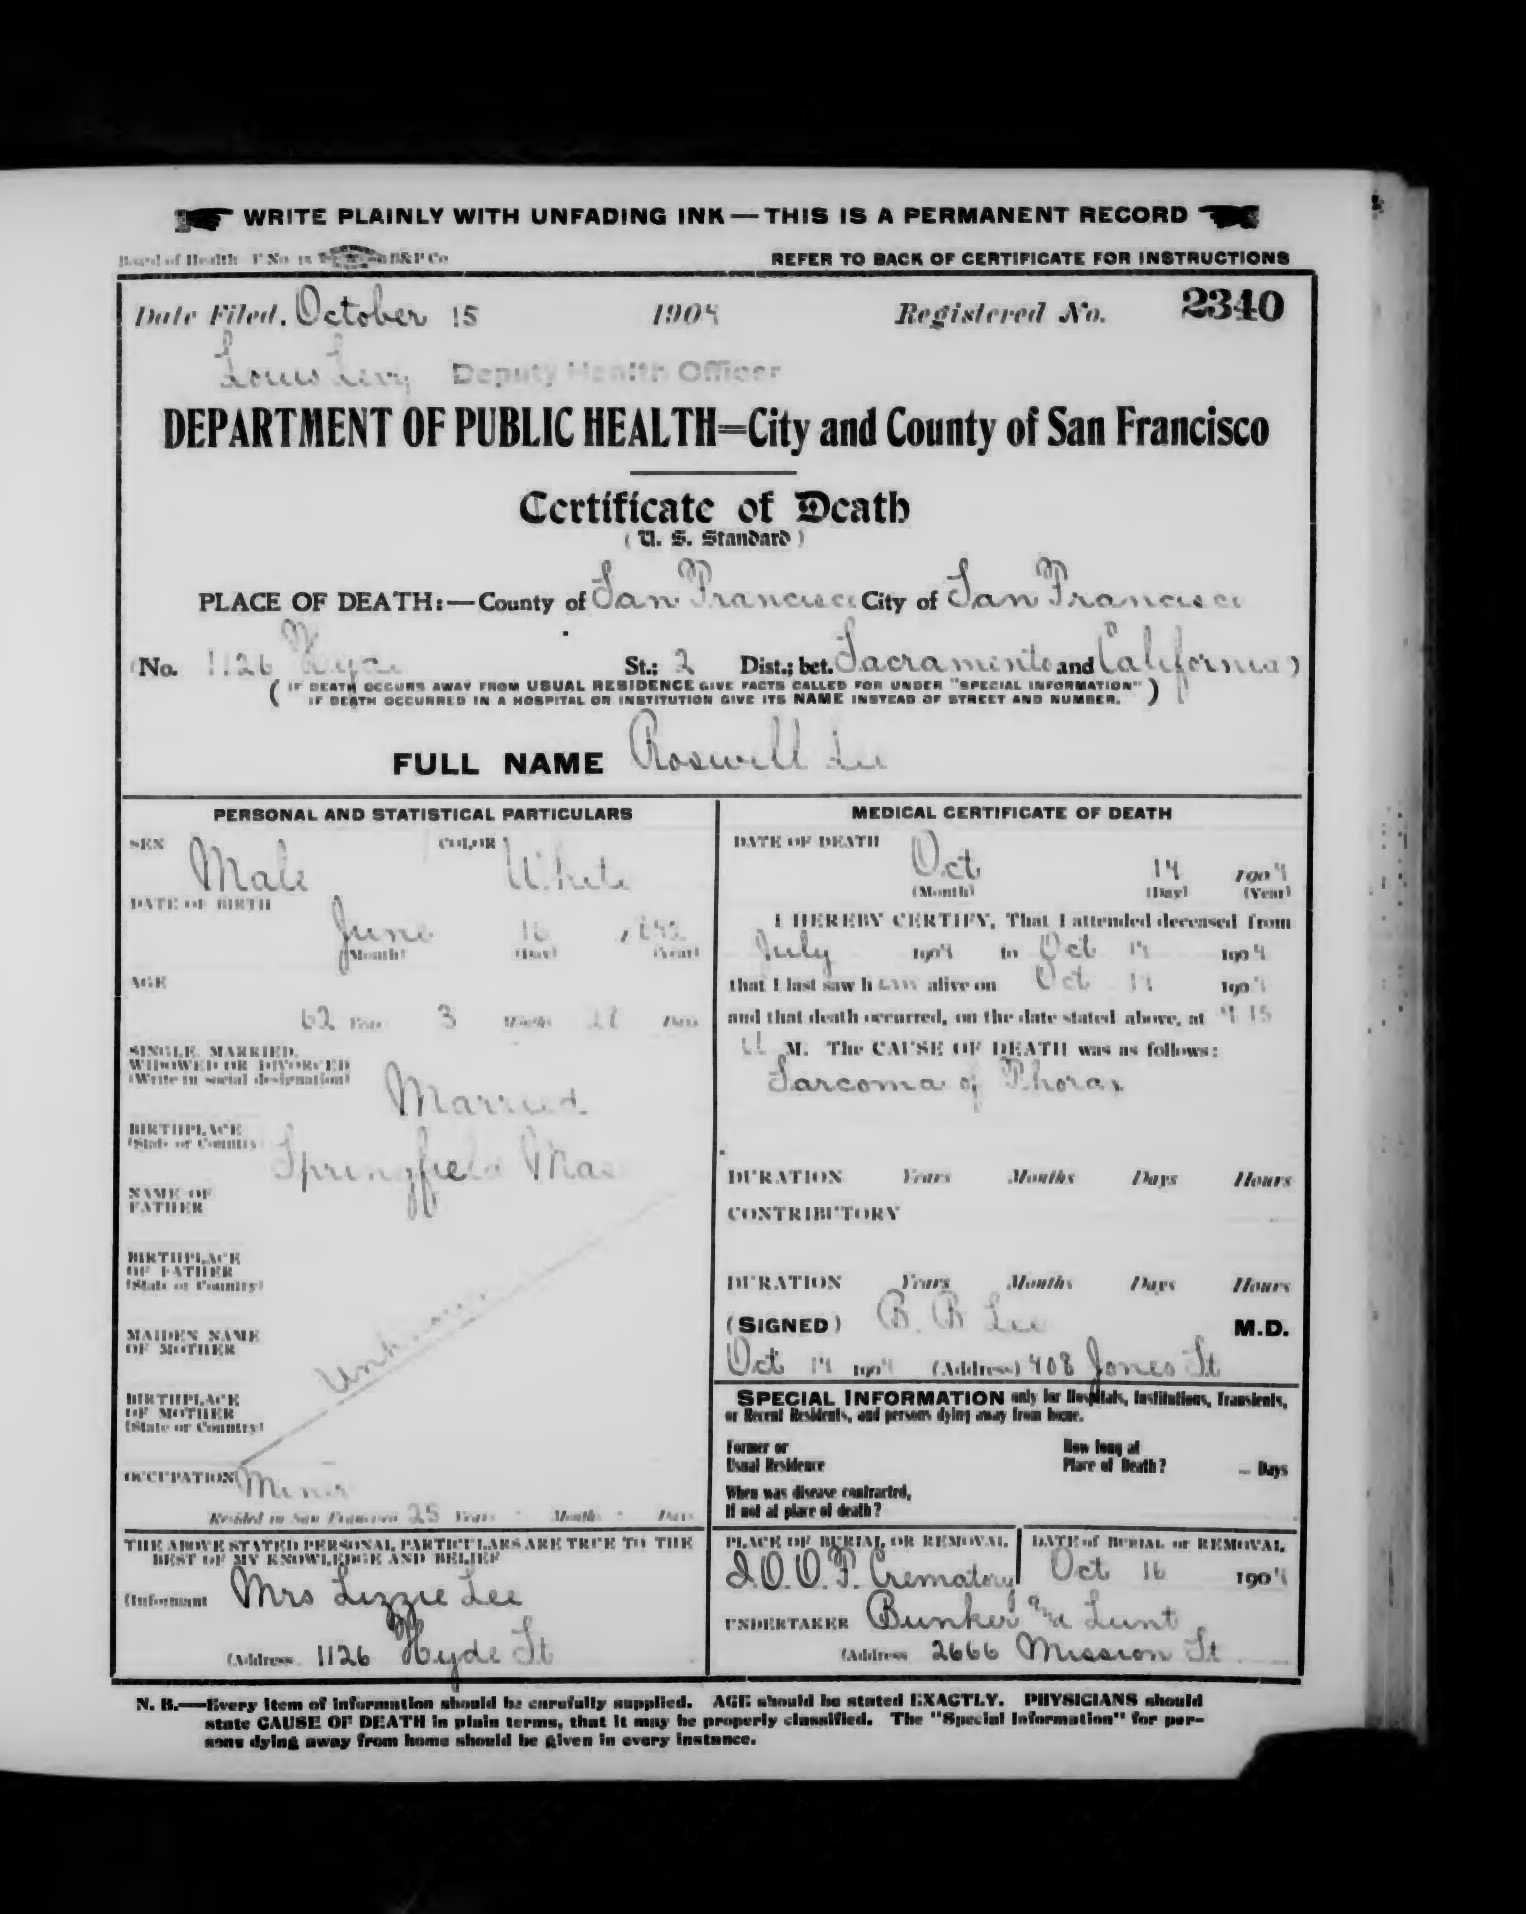 WRITE PLAINLY WITH UNFADING INK—THIS IS A PERMANENT RECORD
Board of Health F No 15 B&P Co
REFER TO BACK OF CERTIFICATE FOR INSTRUCTIONS
Date Filed, October 15 1904 Registered No. 2340
Louis Levy Deputy Health Officer
DEPARTMENT OF PUBLIC HEALTH=City and County of San Francisco
Certificate of Death
(U. S. Standard)
PLACE OF DEATH:—County of San Francisco City of San Francisco
(No. 1126 Hyde St.; 2 Dist.; bet. Sacramento and California)
(IF DEATH OCCURS AWAY FROM USUAL RESIDENCE GIVE FACTS CALLED FOR UNDER "SPECIAL INFORMATION"
IF DEATH OCCURRED IN A HOSPITAL OR INSTITUTION GIVE ITS NAME INSTEAD OF STREET AND NUMBER.)
FULL NAME Roswell Lee
PERSONAL AND STATISTICAL PARTICULARS
SEX Male COLOR White
DATE OF BIRTH
June 16, 1842
(Month) (Day) (Year)
AGE
62 Years 3 Months 28 Days
SINGLE, MARRIED,
WIDOWED OR DIVORCED
(Write in social designation)
Married
BIRTHPLACE
(State or Country)
Springfield Mas
NAME OF
FATHER
BIRTHPLACE
OF FATHER
(State or Country)
Unknown
MAIDEN NAME
OF MOTHER
BIRTHPLACE
OF MOTHER
(State or Country)
OCCUPATION Miner
Resided in San Francisco 25 Years Months Days
THE ABOVE STATED PERSONAL PARTICULARS ARE TRUE TO THE
BEST OF MY KNOWLEDGE AND BELIEF
(Informant Mrs Lizzie Lee
(Address 1126 Hyde St
MEDICAL CERTIFICATE OF DEATH
DATE OF DEATH
Oct 14 1904
(Month) (Day) (Year)
I HEREBY CERTIFY, That I attended deceased from
July 1904 to Oct 14 1904
that I last saw him alive on Oct 14 1904
and that death occurred, on the date stated above, at 9 15
A M. The CAUSE OF DEATH was as follows:
Sarcoma of Thorax
DURATION Years Months Days Hours
CONTRIBUTORY
DURATION Years Months Days Hours
(SIGNED) B. B Lee M.D.
Oct 14 1904 (Address) 408 Jones St
SPECIAL INFORMATION only for Hospitals, Institutions, Transients,
or Recent Residents, and persons dying away from home.
Former or
Usual Residence
How long at
Place of Death? Days
When was disease contracted,
If not at place of death?
PLACE OF BURIAL OR REMOVAL
I.O.O.F. Crematory
DATE of BURIAL or REMOVAL
Oct 16 1904
UNDERTAKER Bunker and Lunt
(Address 2666 Mission St
N. B.—Every item of information should be carefully supplied. AGE should be stated EXACTLY. PHYSICIANS should
state CAUSE OF DEATH in plain terms, that it may be properly classified. The "Special Information" for per-
sons dying away from home should be given in every instance.